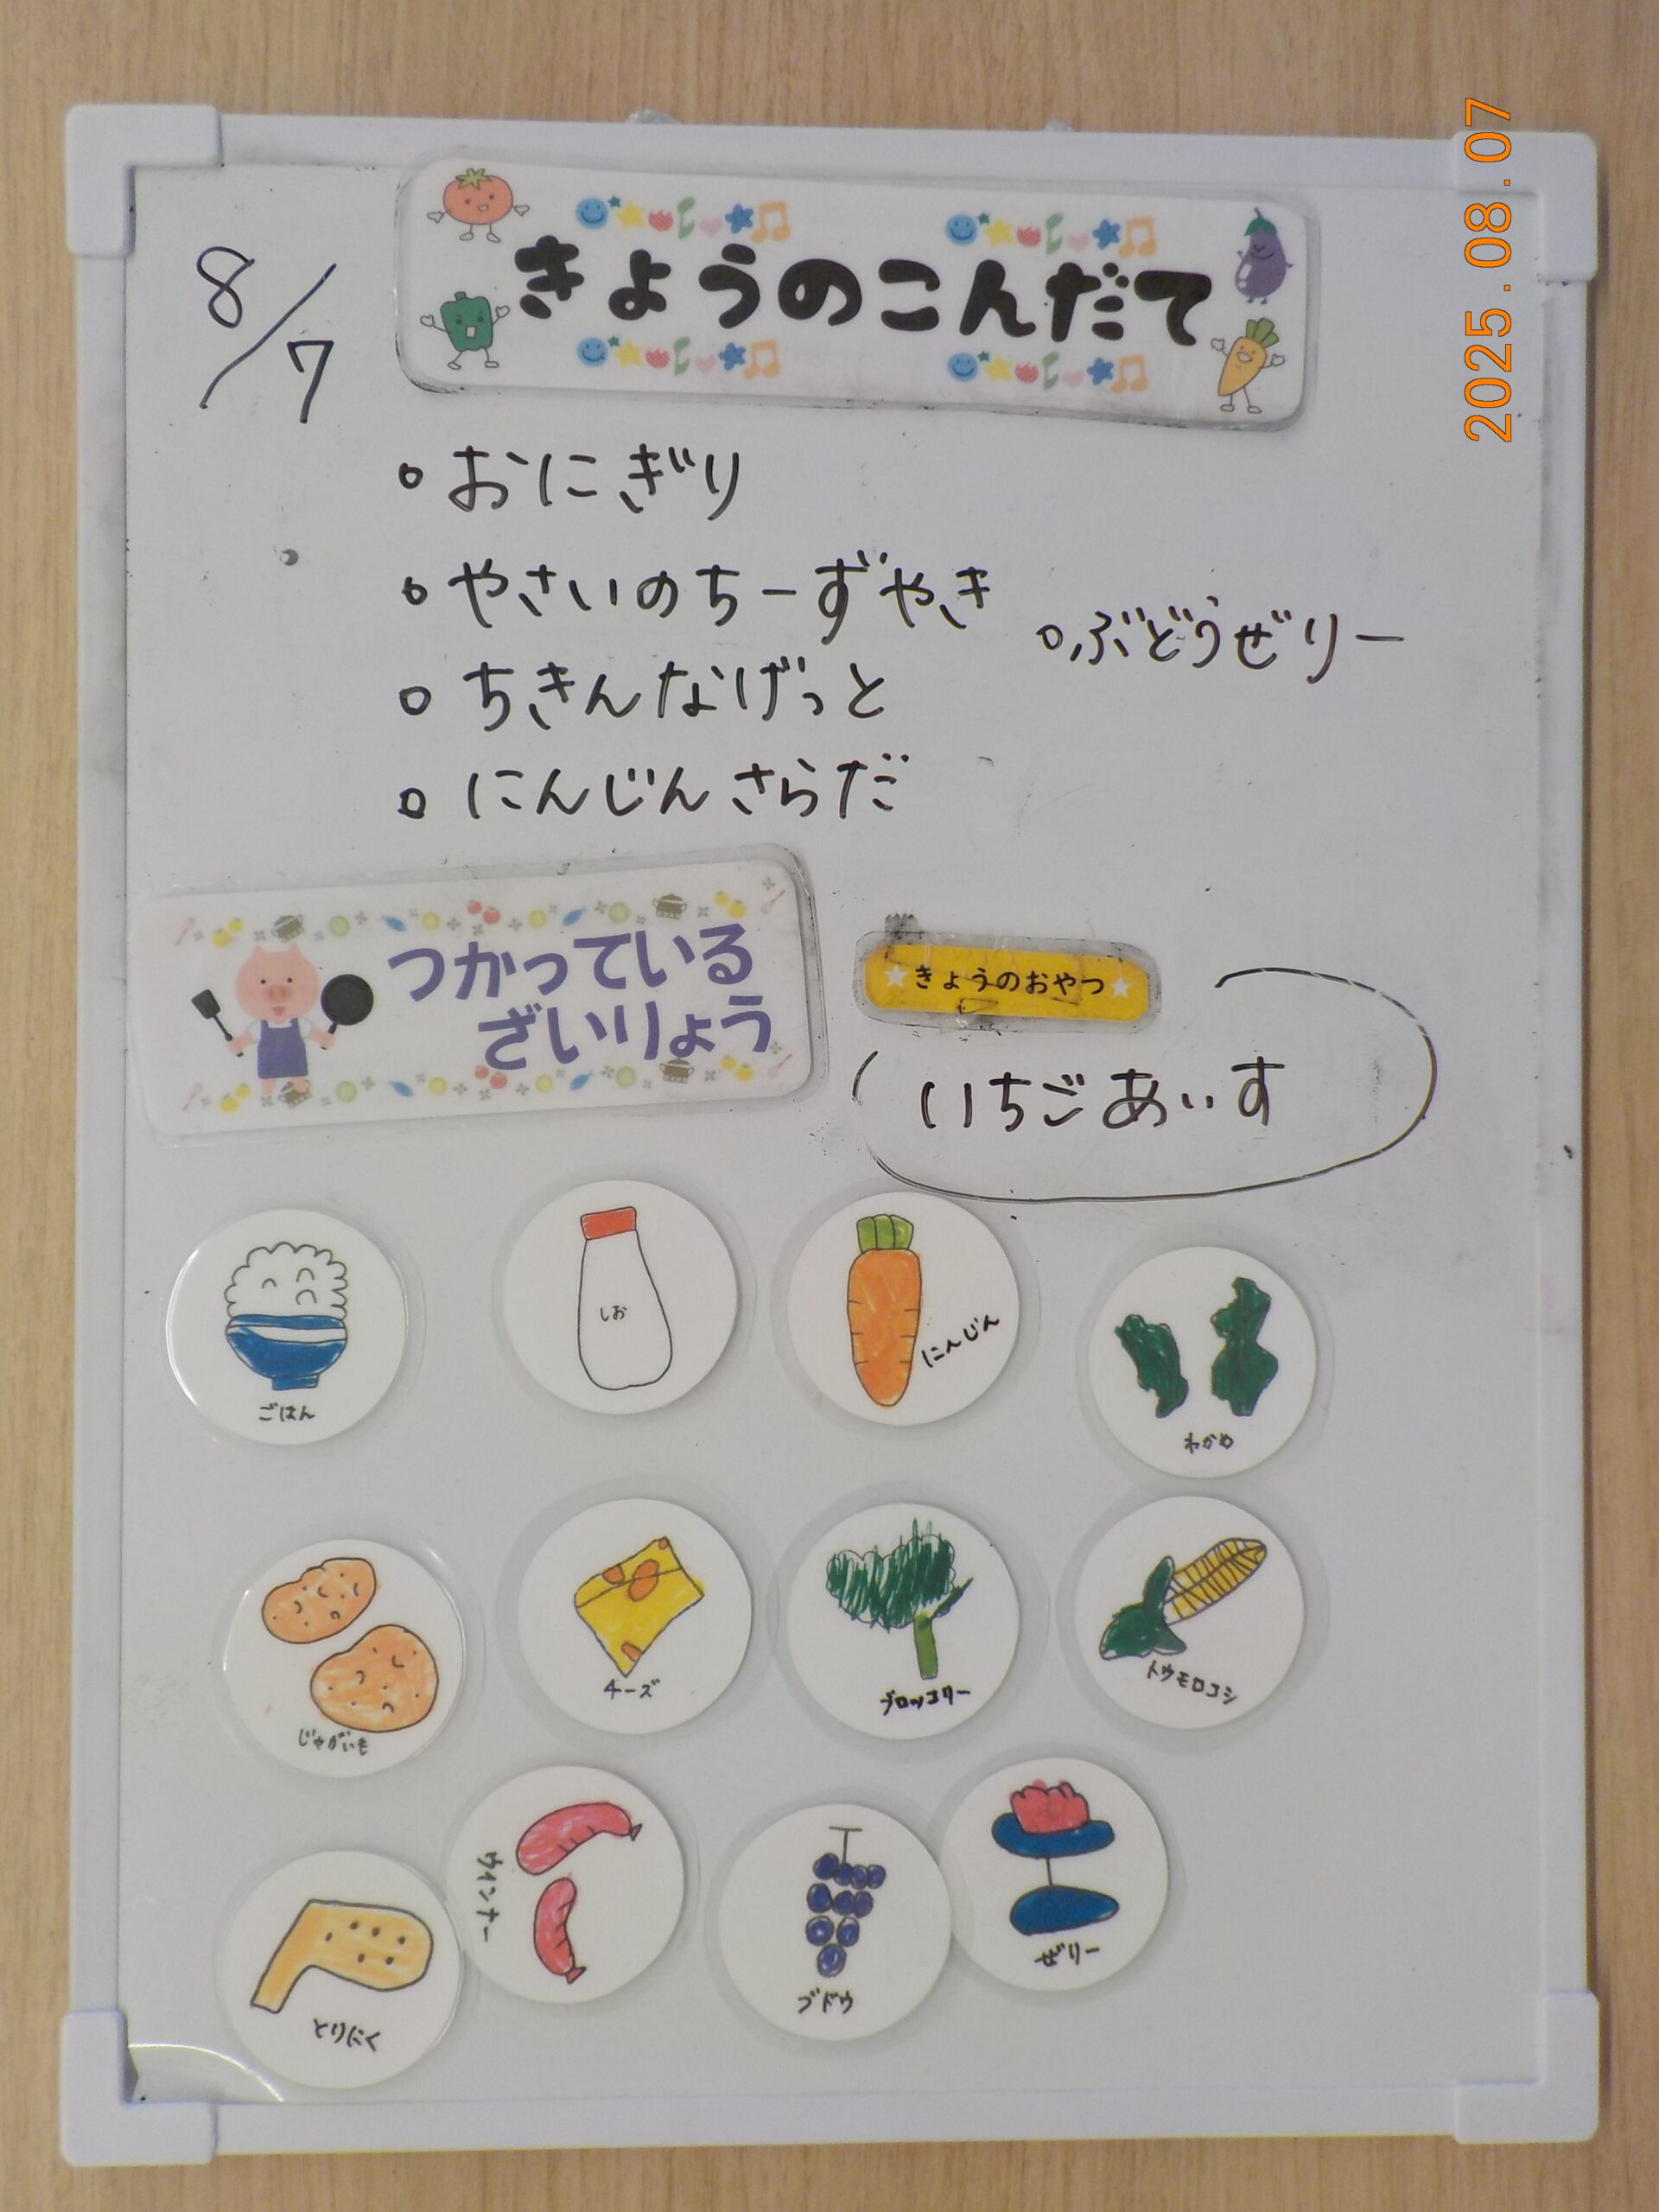 2025.08.07
8/7
きょうのこんだて
。おにぎり
。やさいのちーずやき
。ぶどうぜリー
。ちきんなげっと
。にんじんさらだ
つかっている
ざいりょう
★きょうのおやつ★
いちごあいす
ごはん
しお
にんじん
わかめ
じゃがいも
チーズ
ブロッコリー
トウモロコシ
とりにく
ウインナー
ブドウ
ゼリー